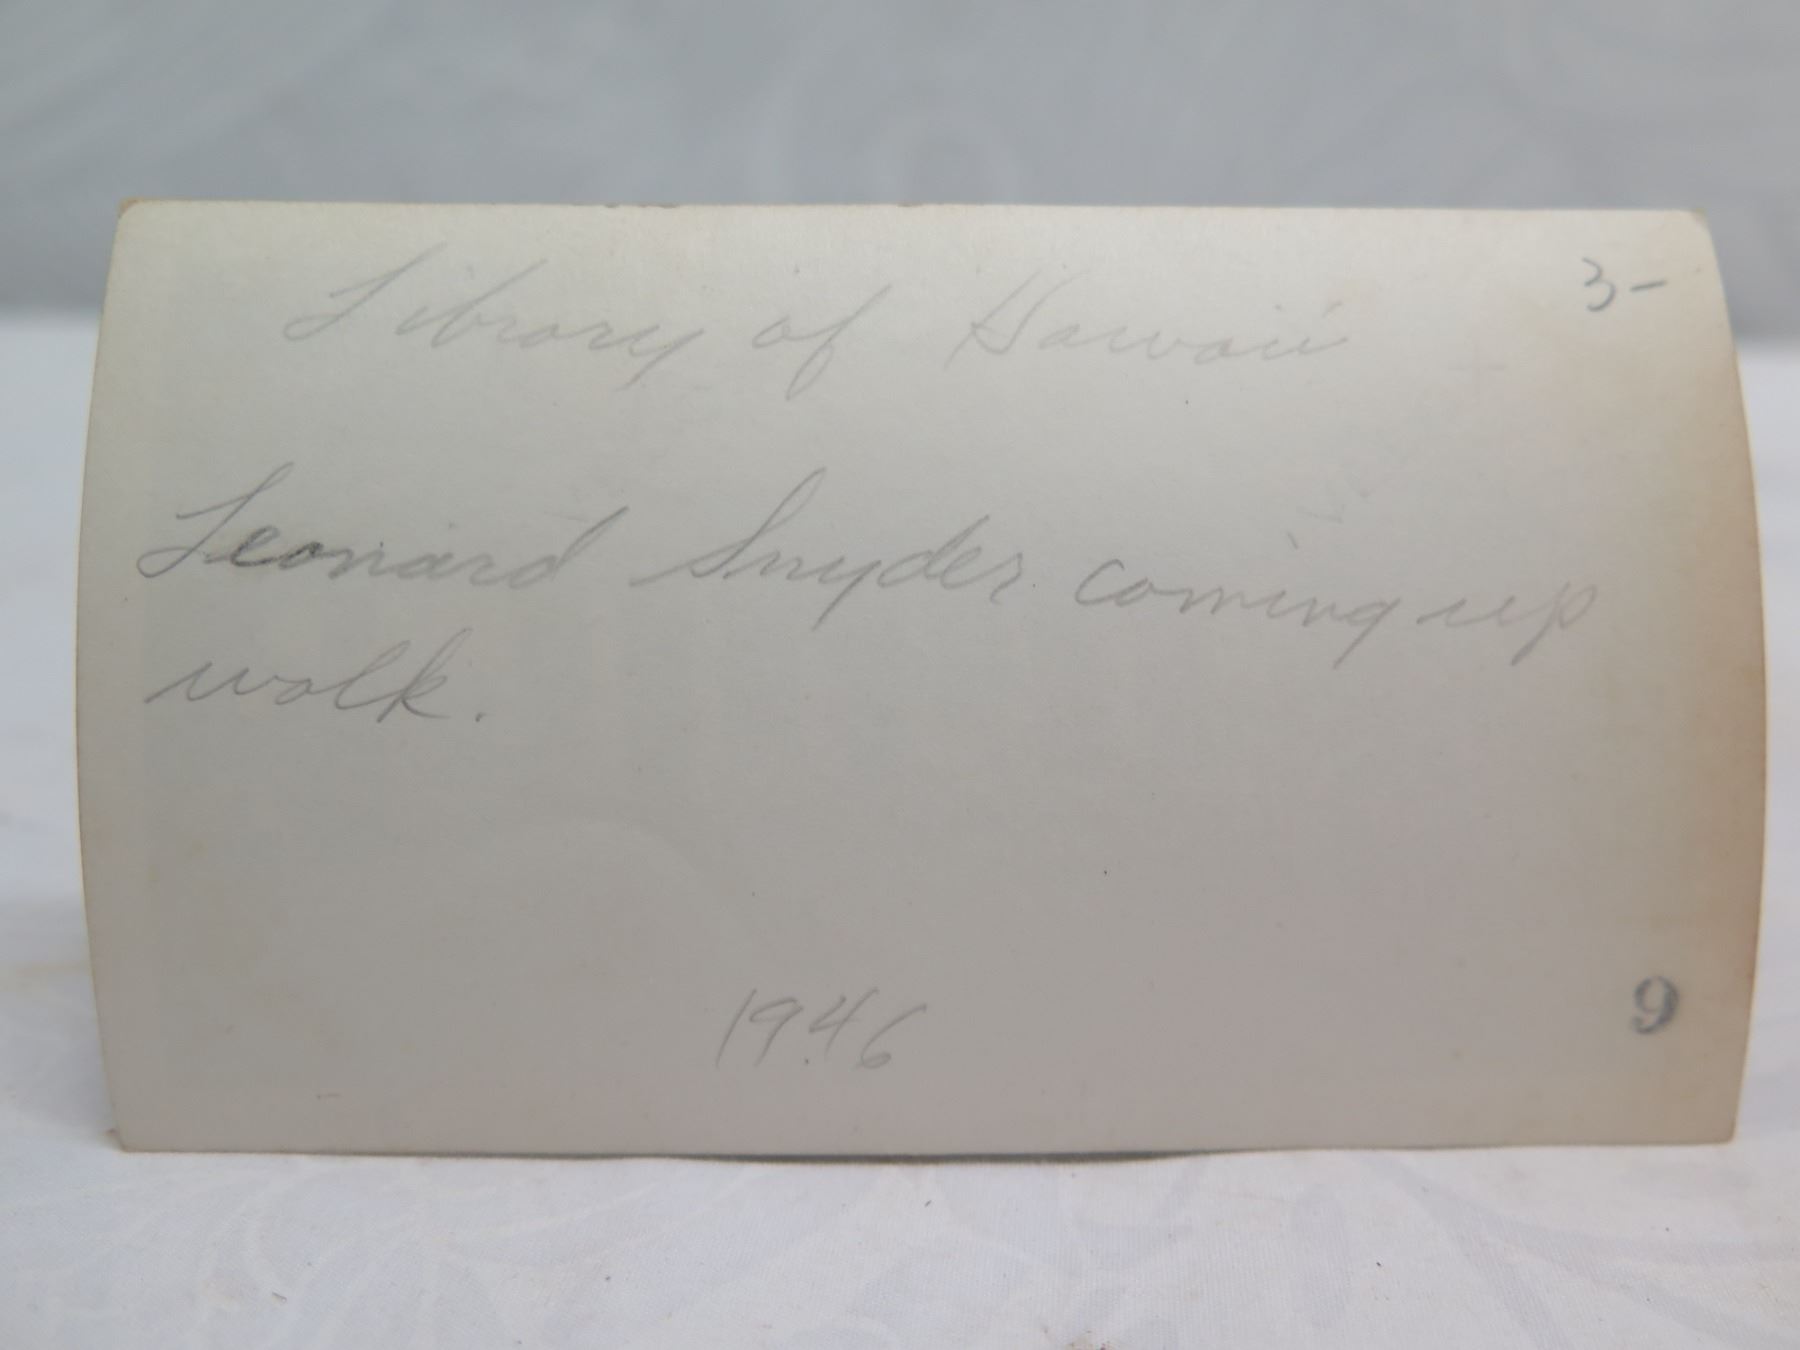 3-
Library of Hawaii
Leonard Snyder coming up
walk.
1946
9